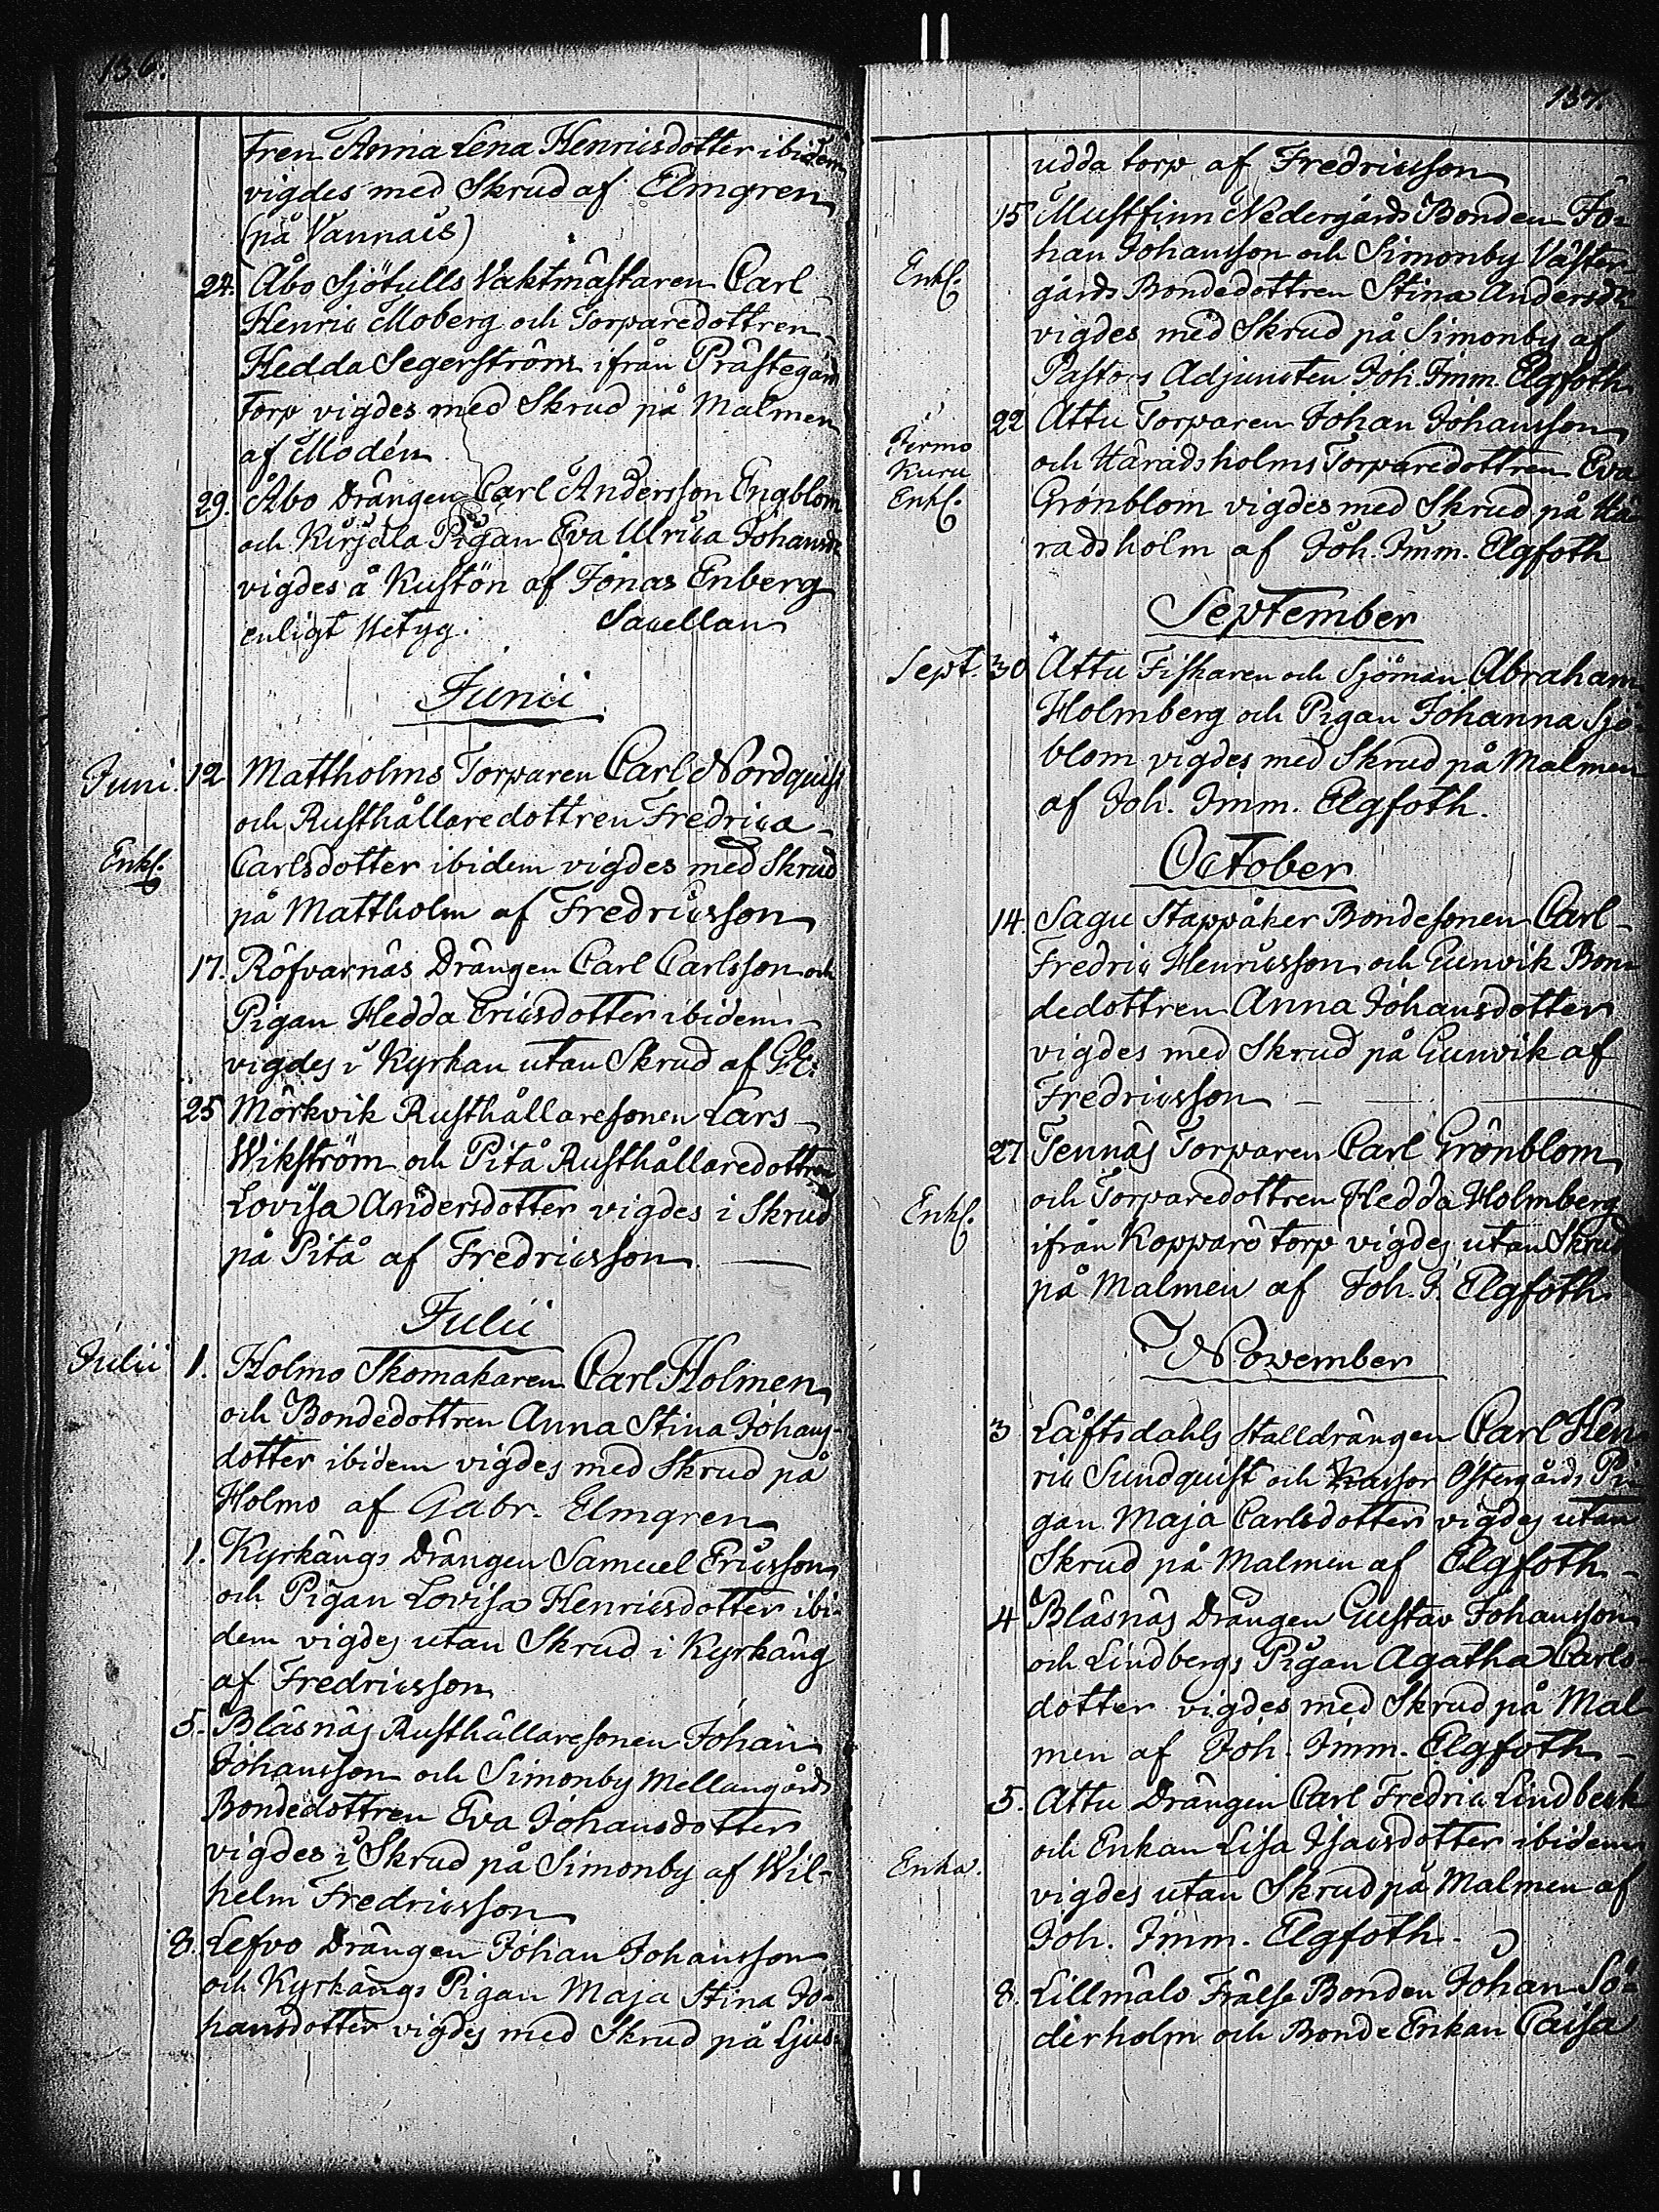 136.
tren Anna Lena Henricsdotter ibidem
vigdes med Skrud af Elmgren
(på Vannais)
24. Åbo Sjötulls Vaktmästaren Carl
Henric Moberg och Torparedottren
Hedda Segerström ifrån Prästegård
Torp vigdes med Skrud på Malmen
af Modén
29. Åbo Drängen Carl Andersson Engblom
och Kirjala Pigan Eva Ulrica Johansdr
vigdes å Kustön af Jonas Enberg
enligt betyg. Sacellan
Junii
Juni. 12 Mattholms Torparen Carl Nordquist
och Rusthållaredottren Fredrica
Enkl. Carlsdotter ibidem vigdes med Skrud
på Mattholm af Fredricsson
17. Röfvarnäs Drängen Carl Carlsson och
Pigan Hedda Ericsdotter ibidem
vigdes i Kyrkan utan Skrud af G.E.
25 Mörkvik Rusthållaresonen Lars
Wikström och Pitå Rusthållaredottren
Lovisa Andersdotter vigdes i Skrud
på Pitå af Fredricsson
Julii
Julii 1. Holmo Skomakaren Carl Holmen
och Bondedottren Anna Stina Johans-
dotter ibidem vigdes med Skrud på
Holmo af Gabr. Elmgren
1. Kyrkängs Drängen Samuel Ericsson
och Pigan Lovisa Henricsdotter ibi-
dem vigdes utan Skrud i Kyrkäng
af Fredricsson
5. Bläsnäs Rusthållaresonen Johan
Johansson och Simonby Mellangårds
Bondedottren Eva Johansdotter
vigdes i Skrud på Simonby af Wil-
helm Fredricsson
8. Lefvo Drängen Johan Johansson
och Kyrkängs Pigan Maja Stina Jo-
hansdotter vigdes med Skrud på Ljus-
137.
udda torp af Fredricsson
15 Mustfinn Nedergårds Bonden Jo-
han Johansson och Simonby Väster-
Enkl. gårds Bondedottren Stina Andersdr
vigdes med Skrud på Simonby af
Pastors Adjuncten Joh. Imm. Elgfoth
22 Attu Torparen Johan Johansson
Jermo
Kuru och Häradsholms Torparedottren Eva
Enkl. Grönblom vigdes med Skrud på Hä
radsholm af Joh. Imm. Elgfoth
September
Sept. 30 Attu Fiskaren och Sjöman Abraham
Holmberg och Pigan Johanna Sjö-
blom vigdes med Skrud på Malmen
af Joh. Imm. Elgfoth.
October
14. Sagu Stappåker Bondesonen Carl
Fredric Henricsson och Gunvik Bon-
dedottren Anna Johansdotter
vigdes med Skrud på Gunvik af
Fredricsson
27 Tennäs Torparen Carl Grönblom
och Torparedottren Hedda Holmberg
Enkl. ifrån Kopparö torp vigdes utan Skrud
på Malmen af Joh. I. Elgfoth.
November
3 Låftsdahls Stalldrängen Carl Hen
ric Sundquist och Kassor Östergårds Pi-
gan Maja Carlsdotter vigdes utan
Skrud på Malmen af Elgfoth
4 Bläsnäs Drängen Gustav Johansson
och Lindbergs Pigan Agatha Carls-
dotter vigdes med Skrud på Mal-
men af Joh. Imm. Elgfoth
5. Attu Drängen Carl Fredric Lindbeck
och Enkan Lisa Isacsdotter ibidem
Enka. vigdes utan Skrud på Malmen af
Joh. Imm. Elgfoth.
8. Lillmälo Frälse Bonden Johan Sö-
derholm och Bonde Enkan Caisa